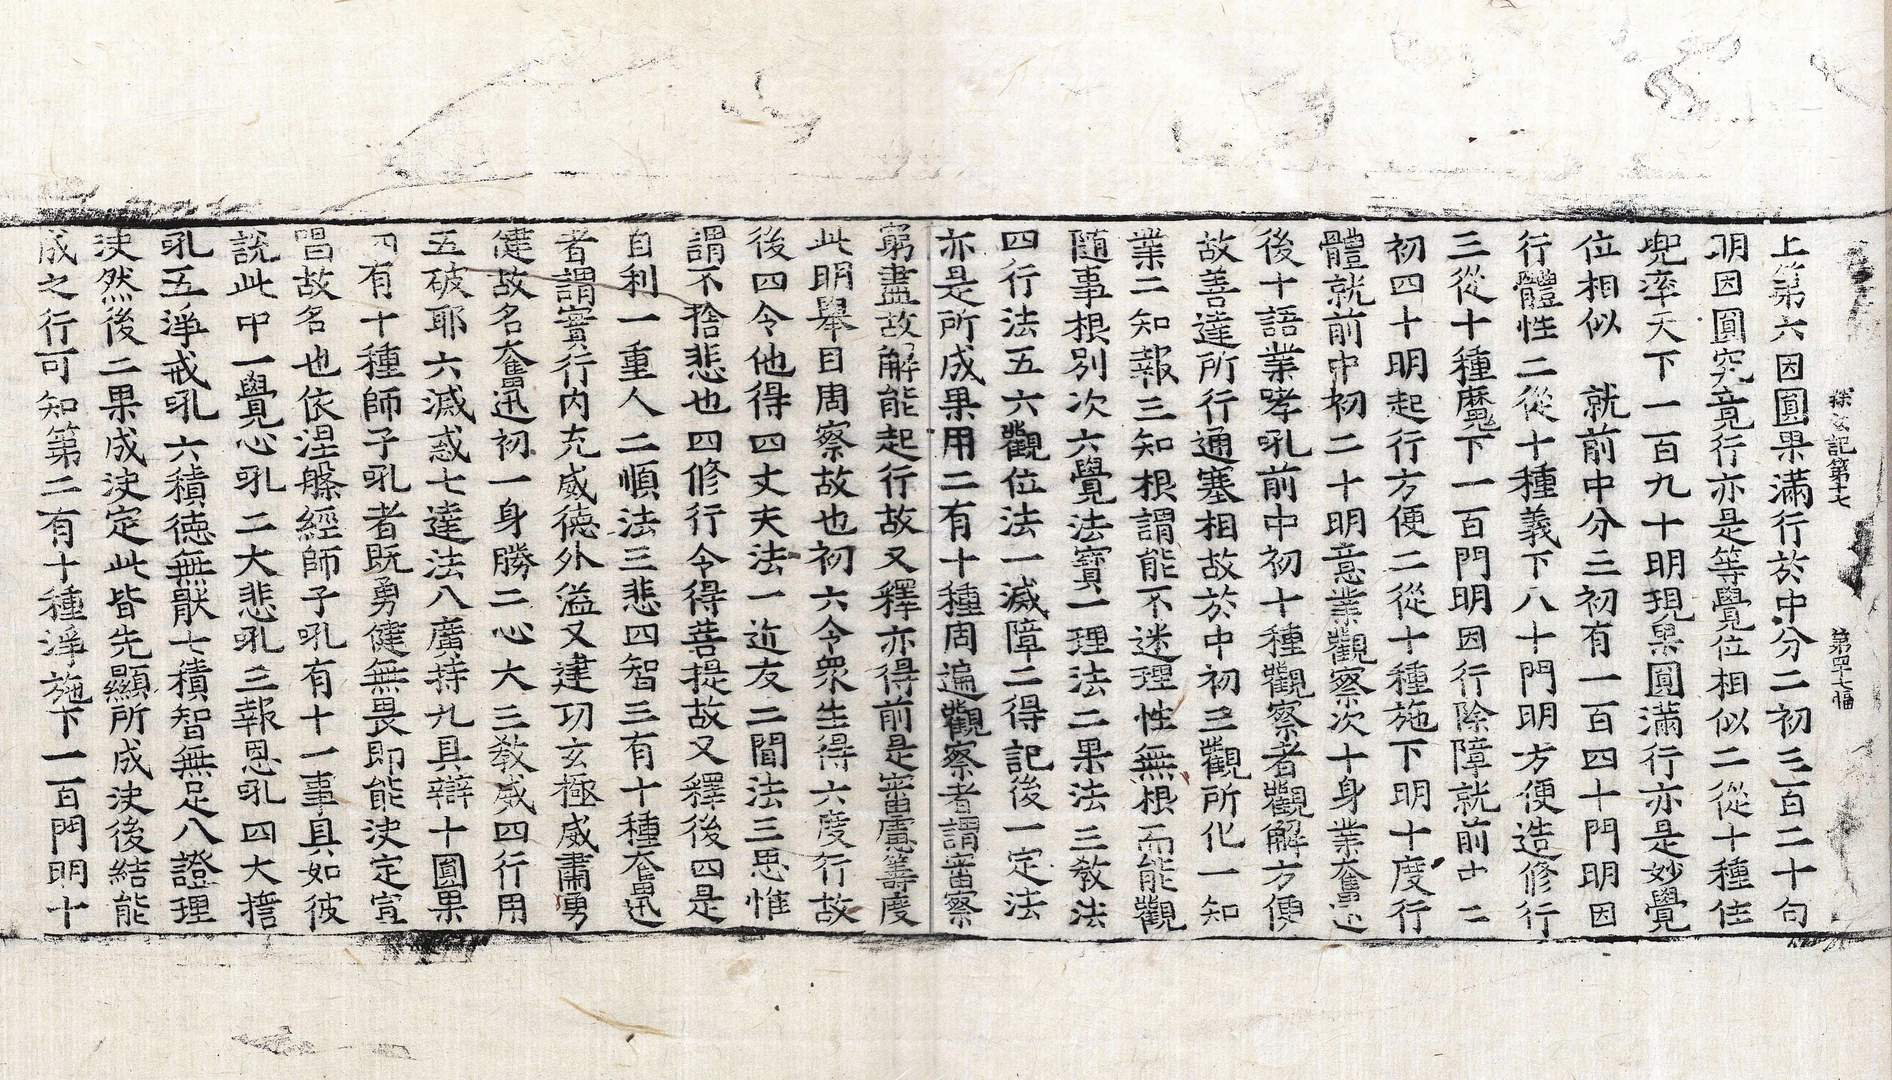 探玄記第十七　第四十七幅
上第六因圓果滿行於中分二初三百二十句
明因圓究竟行亦是等覺位相似二從十種住
兜率天下一百九十明現果圓滿行亦是妙覺
位相似　就前中分三初有一百四十門明因
行體性二從十種義下八十門明方便造修行
三從十種魔下一百門明因行除障就前中二
初四十明起行方便二從十種施下明十度行
體就前中初二十明意業觀察次十身業奮迅
後十語業哮吼前中初十種觀察者觀解方便
故善達所行通塞相故於中初三觀所化一知
業二知報三知根謂能不迷理性無根而能觀
隨事根別次六覺法寶一理法二果法三教法
四行法五六觀位法一滅障二得記後一定法
亦是所成果用二有十種周遍觀察者謂審察
窮盡故解能起行故又釋亦得前是審慮籌度
此明舉目周察故也初六令衆生得六度行故
後四令他得四丈夫法一近友二聞法三思惟
謂不捨悲也四修行令得菩提故又釋後四是
自利一重人二順法三悲四智三有十種奮迅
者謂實行內充威德外溢又建功玄極威肅勇
健故名奮迅初一身勝二心大三教威四行用
五破耶六滅惑七達法八廣持九具辯十圓果
四有十種師子吼者既勇健無畏即能決定宣
唱故名也依涅槃經師子吼有十一事具如彼
說此中一覺心吼二大悲吼三報恩吼四大擔
吼五淨戒吼六積德無猒七積智無足八證理
決然後二果成決定此皆先顯所成決後結能
成之行可知第二有十種淨施下一百門明十